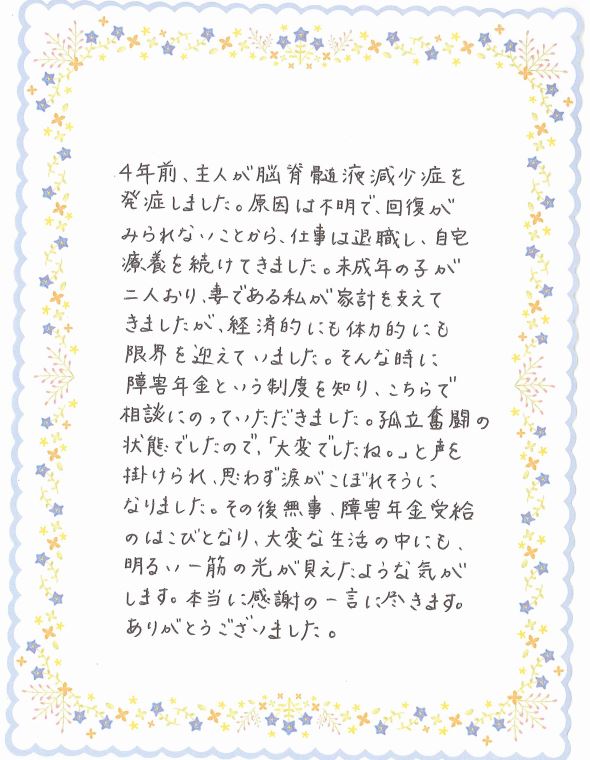 4年前、主人が脳脊髄液減少症を
発症しました。原因は不明で、回復が
みられないことから、仕事は退職し、自宅
療養を続けてきました。未成年の子が
二人おり、妻である私が家計を支えて
きましたが、経済的にも体力的にも
限界を迎えていました。そんな時に
障害年金という制度を知り、こちらで
相談にのっていただきました。孤立奮闘の
状態でしたので、「大変でしたね。」と声を
掛けられ、思わず涙がこぼれそうに
なりました。その後無事、障害年金受給
のはこびとなり、大変な生活の中にも、
明るい一筋の光が見えたような気が
します。本当に感謝の一言に尽きます。
ありがとうございました。